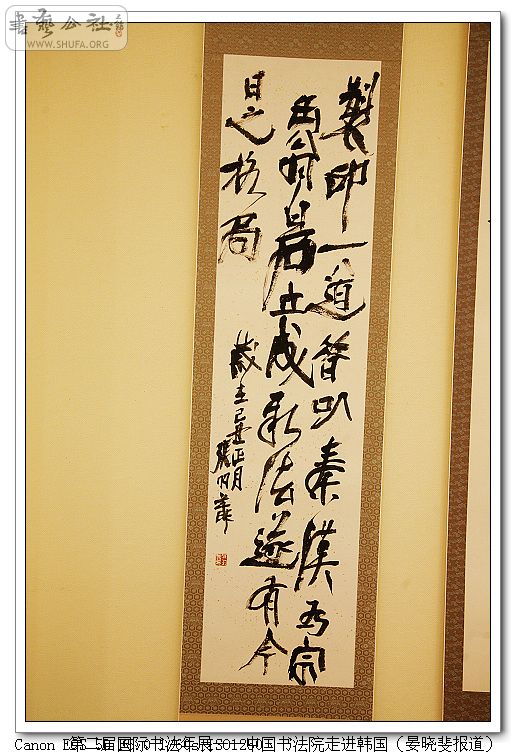 書藝公社
WWW.SHUFA.ORG
製印一道皆以秦漢為宗
翁 成新法遂有今
日之格局
歲在己丑正月
Canon EOS 5D
第二届国际书法年展 中国书法院走进韩国（晏晓斐报道）